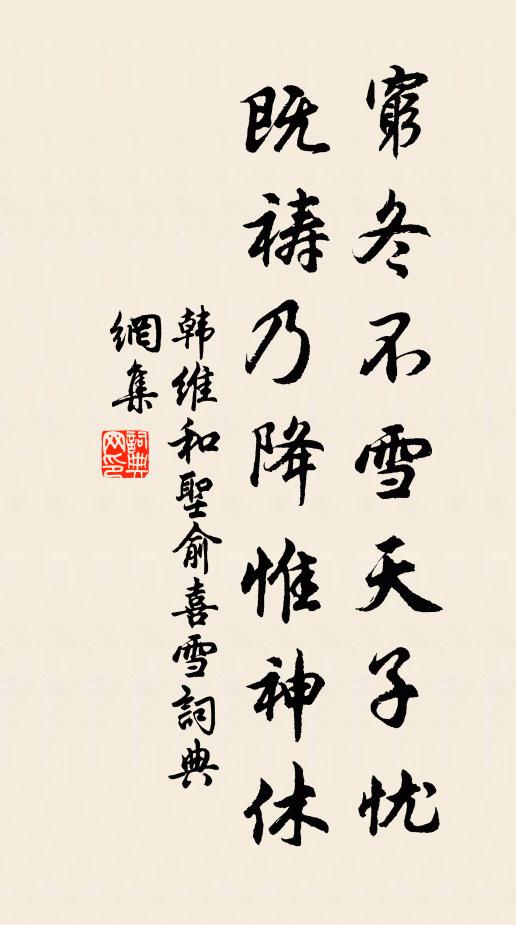 窮冬不雪天子忧
既祷乃降惟神休
韩維和聖俞喜雪詞典
網集
詞典网印